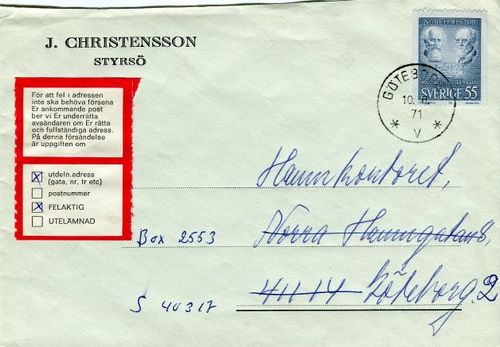 J. CHRISTENSSON
STYRSÖ
NOBELPRIS 1910
SVERIGE 55
GÖTEBORG
10.
71
V
För att fel i adressen
inte ska behöva försena
Er ankommande post
ber vi Er underrätta
avsändaren om Er rätta
och fullständiga adress.
På denna försändelse
är uppgiften om
utdeln.adress
(gata, nr, tr etc)
postnummer
FELAKTIG
UTELÄMNAD
Hamnkontoret,
Box 2553 Norra Hamngatan 8,
S 40317 411 14 Göteborg 2